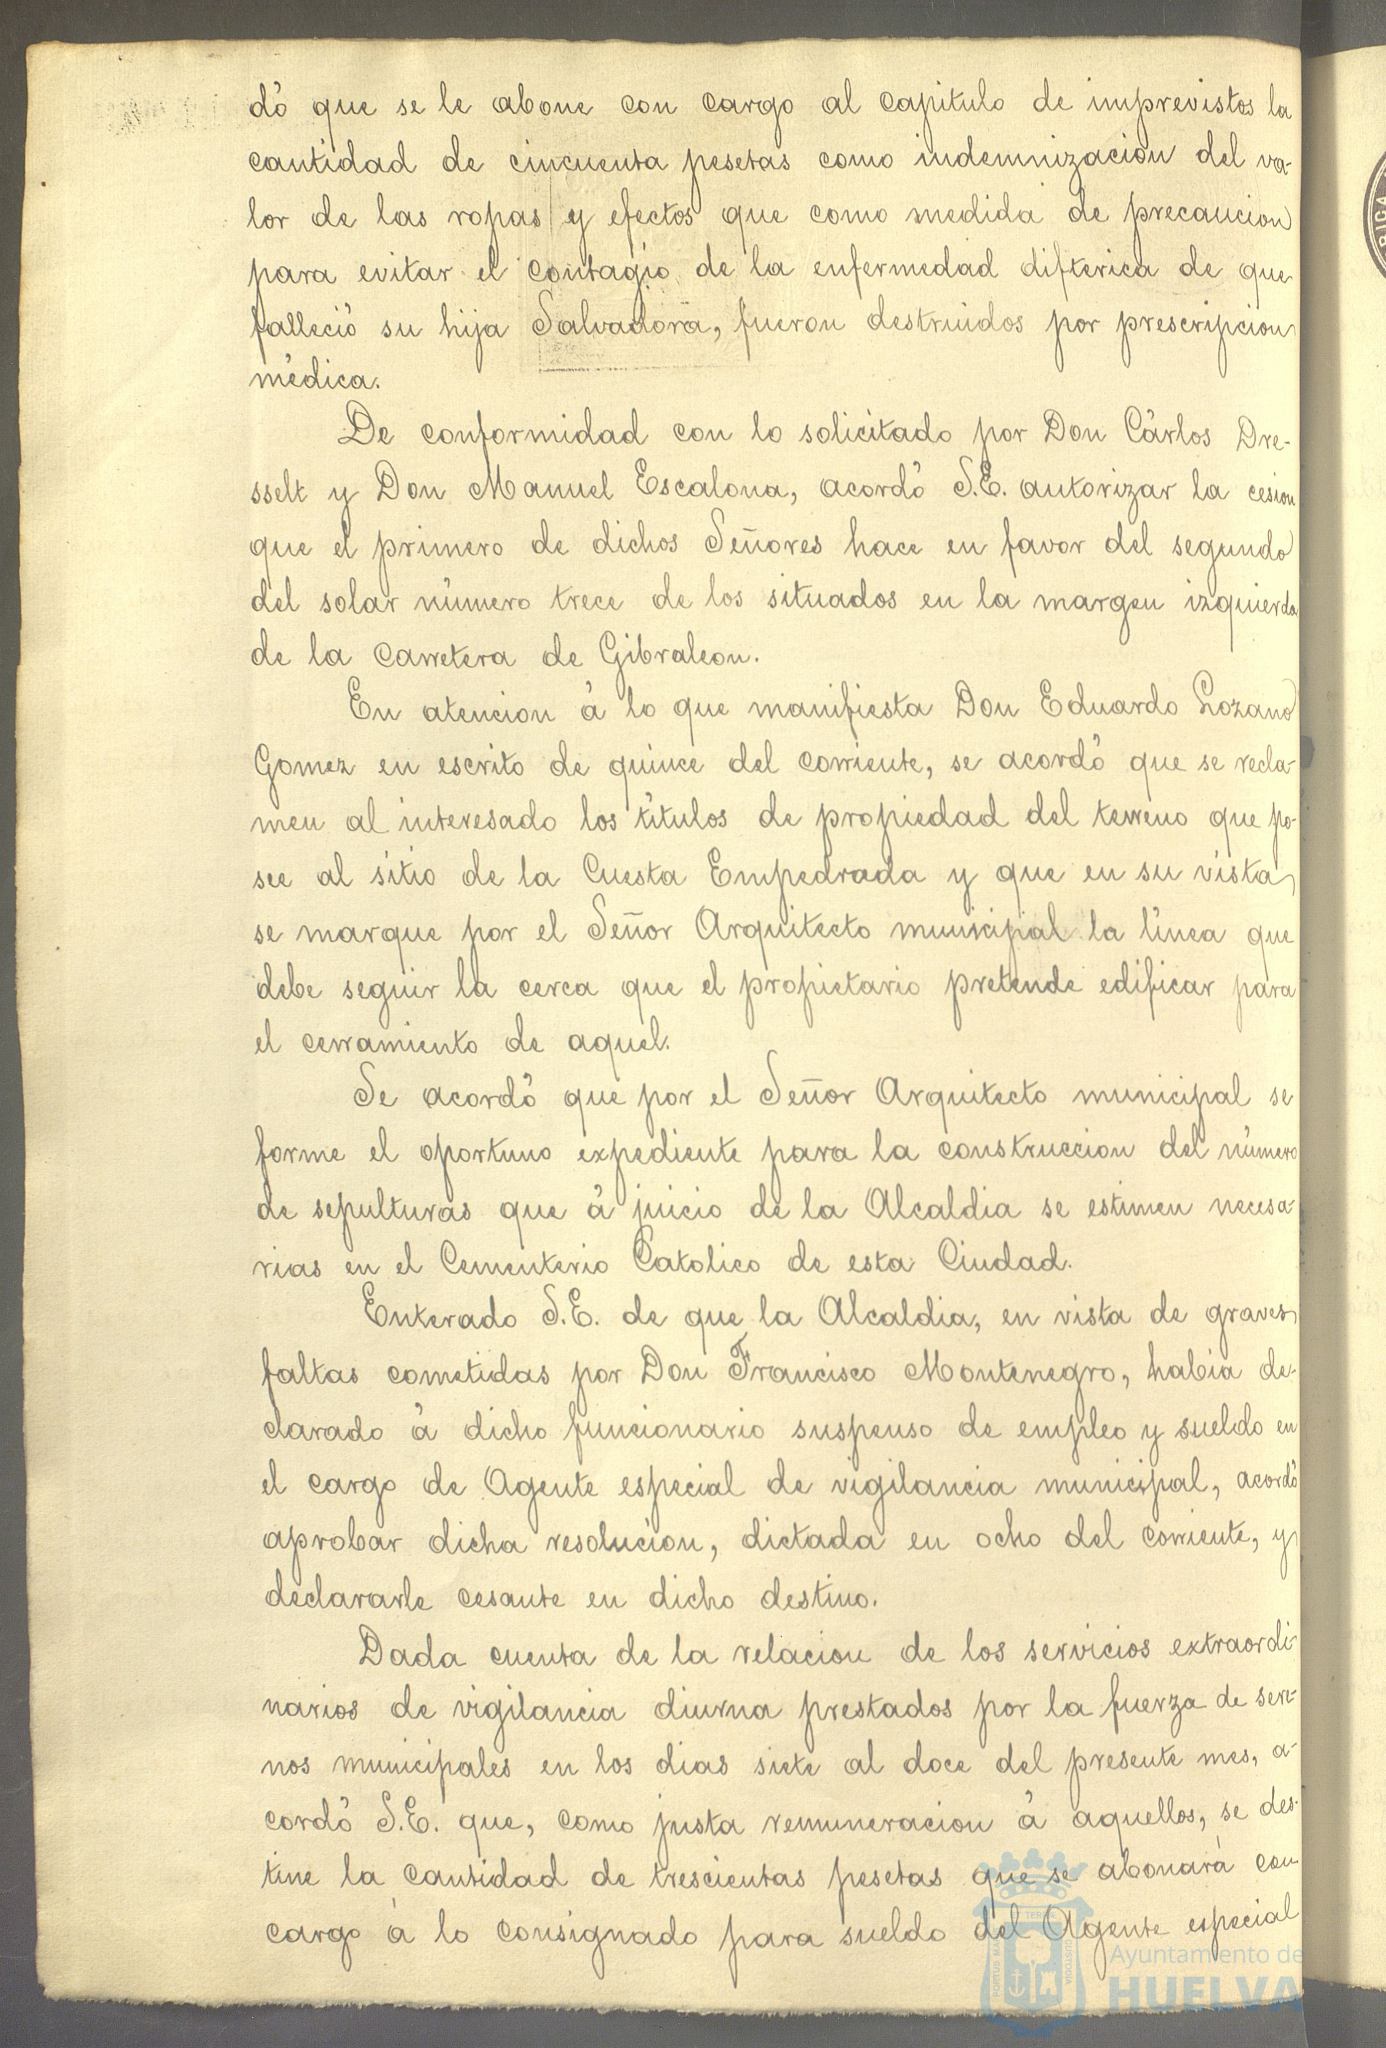 dó que se le abone con cargo al capitulo de imprevistos la
cantidad de cincuenta pesetas como indemnizacion del va-
lor de las ropas y efectos que como medida de precaucion
para evitar el contagio de la enfermedad difterica de que
falleció su hija Salvadora, fueron destruidos por prescripcion
médica.
De conformidad con lo solicitado por Don Cárlos Dre-
sselt y Don Manuel Escalona, acordó S.E. autorizar la cesion
que el primero de dichos Señores hace en favor del segundo
del solar número trece de los situados en la margen izquierda
de la Carretera de Gibraleon.
En atencion á lo que manifiesta Don Eduardo Lozano
Gomez en escrito de quince del corriente, se acordó que se recla-
men al interesado los títulos de propiedad del terreno que po-
see al sitio de la Cuesta Empedrada y que en su vista
se marque por el Señor Arquitecto municipal la línea que
debe seguir la cerca que el propietario pretende edificar para
el cerramiento de aquel.
Se acordó que por el Señor Arquitecto municipal se
forme el oportuno expediente para la construccion del número
de sepulturas que á juicio de la Alcaldia se estimen necesa-
rias en el Cementerio Catolico de esta Ciudad.
Enterado S.E. de que la Alcaldia, en vista de graves
faltas cometidas por Don Francisco Montenegro, habia de-
clarado á dicho funcionario suspenso de empleo y sueldo en
el cargo de Agente especial de vigilancia municipal, acordó
aprobar dicha resolucion, dictada en ocho del corriente, y
declararle cesante en dicho destino.
Dada cuenta de la relacion de los servicios extraordi-
narios de vigilancia diurna prestados por la fuerza de sere-
nos municipales en los dias siete al doce del presente mes, a-
cordó S.E. que, como justa remuneracion á aquellos, se des-
tine la cantidad de trescientas pesetas que se abonará con
cargo á lo consignado para sueldo del Agente especial
Ayuntamiento de
HUELVA